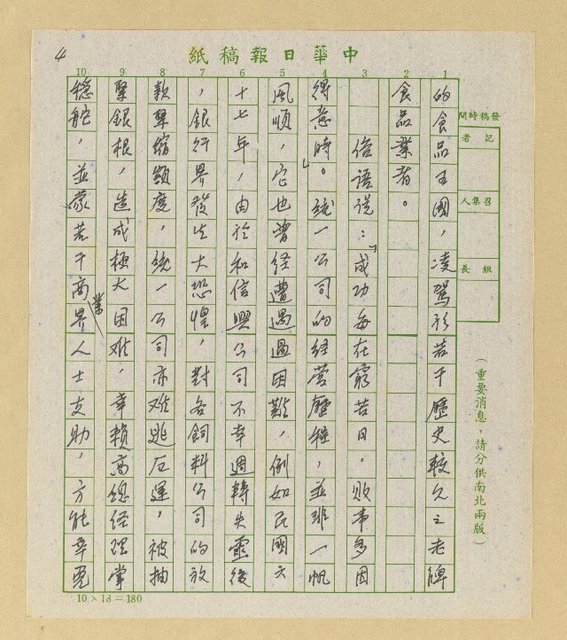 4
中華日報稿紙
發稿時間
記者
召集人
組長
（重要消息，請分供南北兩版）
1 2 3 4 5 6 7 8 9 10
的食品王國，凌駕於若干歷史較久之老牌
食品業者。
俗語說：「成功每在窮苦日，敗事多因
得意時。」統一公司的經營歷程，並非一帆
風順，它也曾經遭遇過困難，例如民國六
十七年，由於和信興公司不幸週轉失靈後
，銀行界發生大恐惶，對各飼料公司的放
款緊縮額度，統一公司亦難逃厄運，被抽
緊銀根，造成極大困難，幸賴高總經理掌
穩舵，並蒙若干商業界人士支助，方能幸免
10×18=180